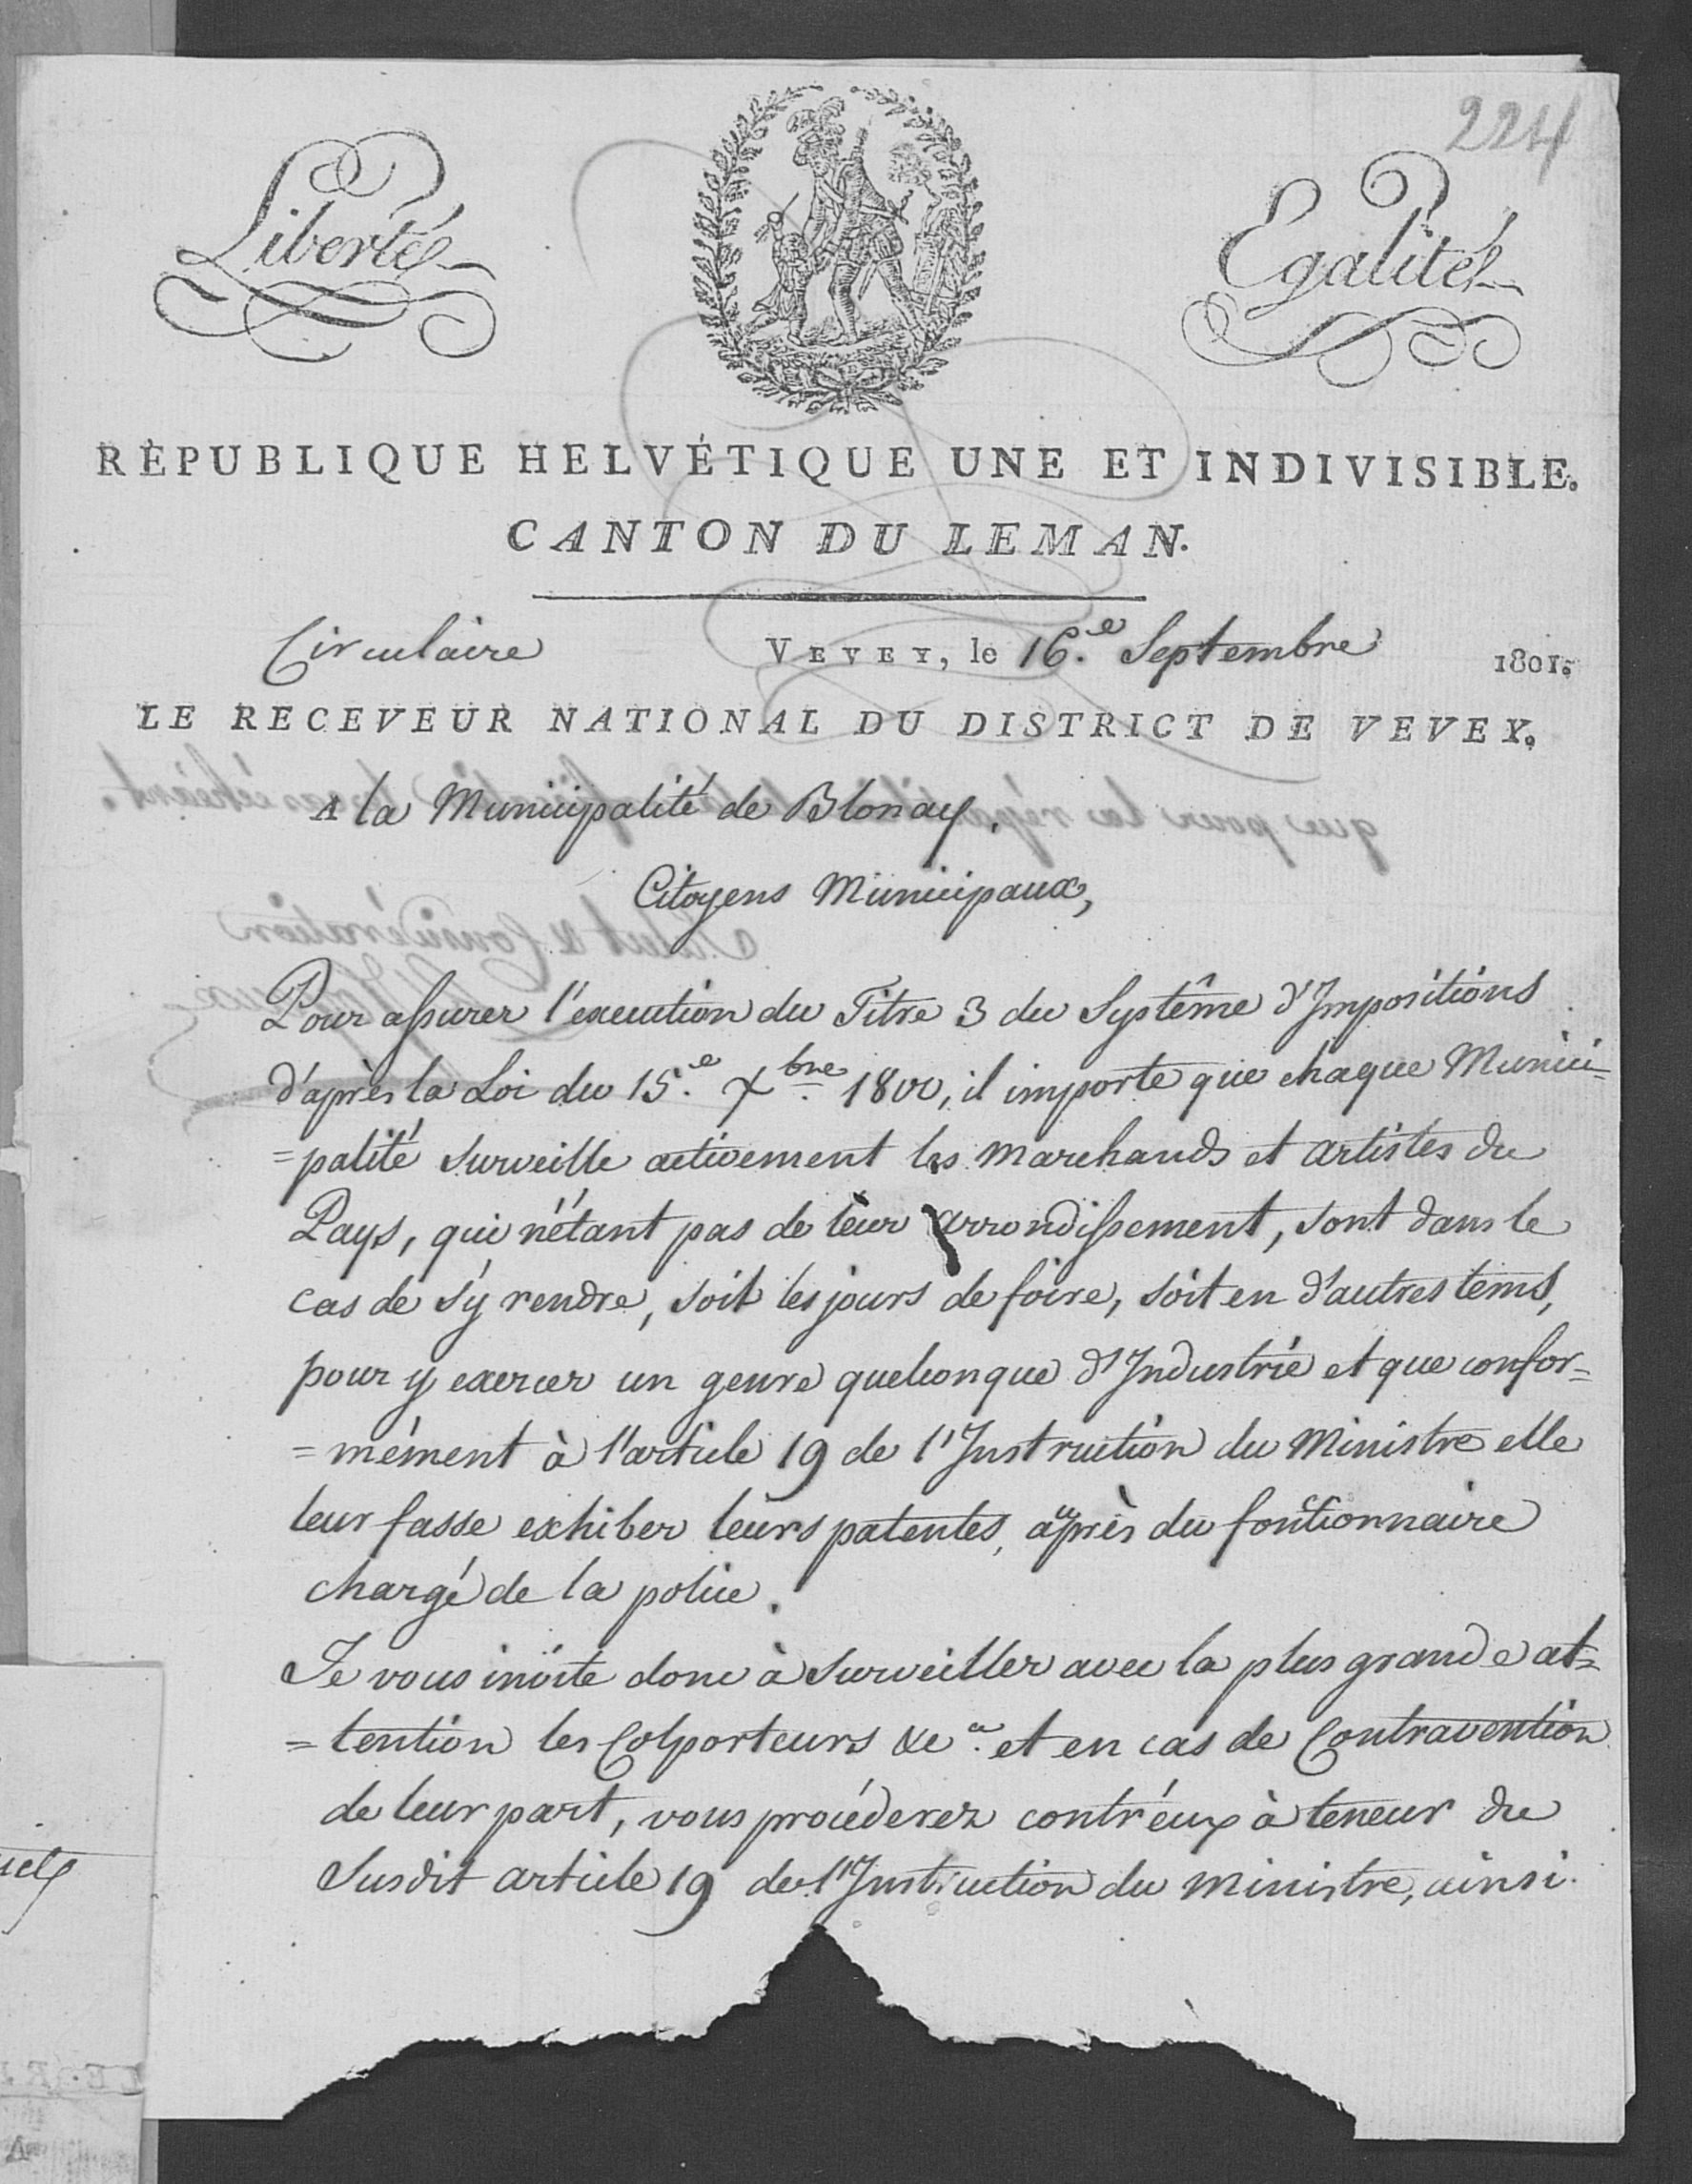 224
Liberté
Egalité
RÉPUBLIQUE HELVÉTIQUE UNE ET INDIVISIBLE.
CANTON DU LEMAN.
Circulaire
VEVEY, le 16.e Septembre 1801.
LE RECEVEUR NATIONAL DU DISTRICT DE VEVEY.
A la Municipalité de Blonay.
Citoyens Municipaux,
Pour assurer l'execution du Titre 3 du Systême d'Impositions
d'après la Loi du 15.e Xbre 1800, il importe que chaque Munici=
=palité surveille activement les marchands et artistes du
Pays, qui n'étant pas de leur arrondissement, sont dans le
cas de s'y rendre, soit les jours de foire, soit en d'autres tems,
pour y exercer un genre quelconque d'Industrie et que confor=
=mément à l'article 19 de l'Instruction du Ministre elle
leur fasse exhiber leurs patentes, après du fonctionnaire
chargé de la police.
Je vous invite donc à surveiller avec la plus grande at=
=tention les Colporteurs &c.a et en cas de Contravention
de leur part, vous procéderez contr'eux à teneur du
Susdit article 19 de l'Instruction du Ministre, ainsi